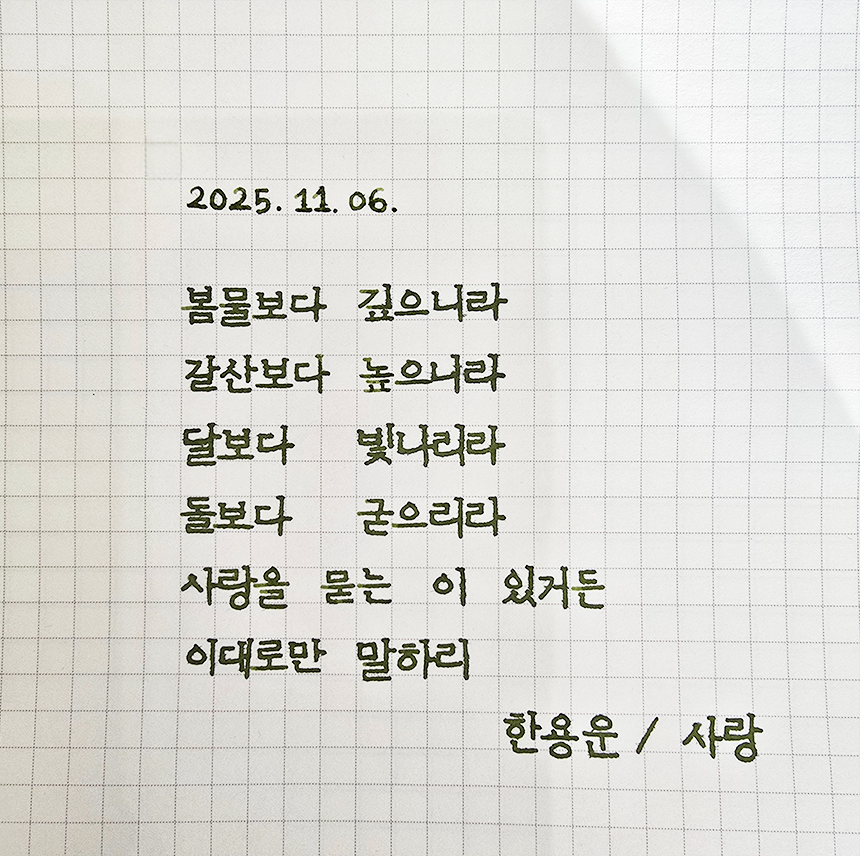 2025. 11. 06.
봄물보다 깊으니라
갈산보다 높으니라
달보다 빛나리라
돌보다 굳으리라
사랑을 묻는 이 있거든
이대로만 말하리
한용운 / 사랑